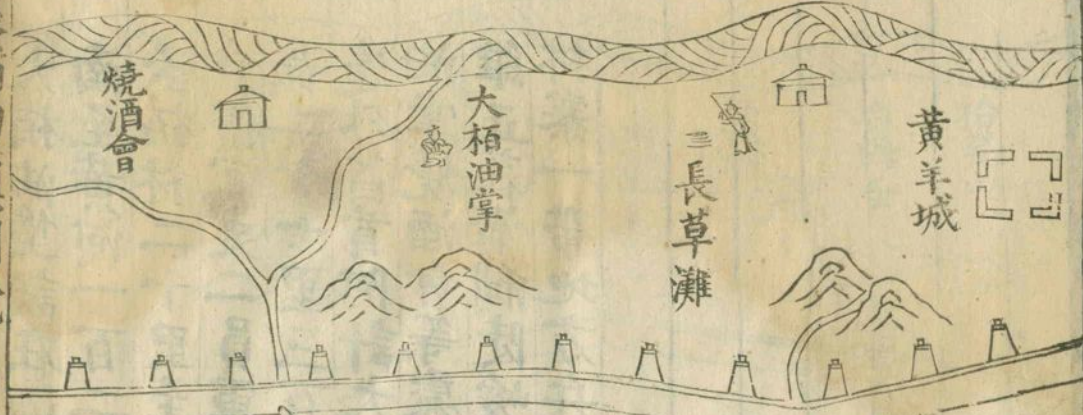 黄羊城
三長草灘
大柏油掌
燒酒會